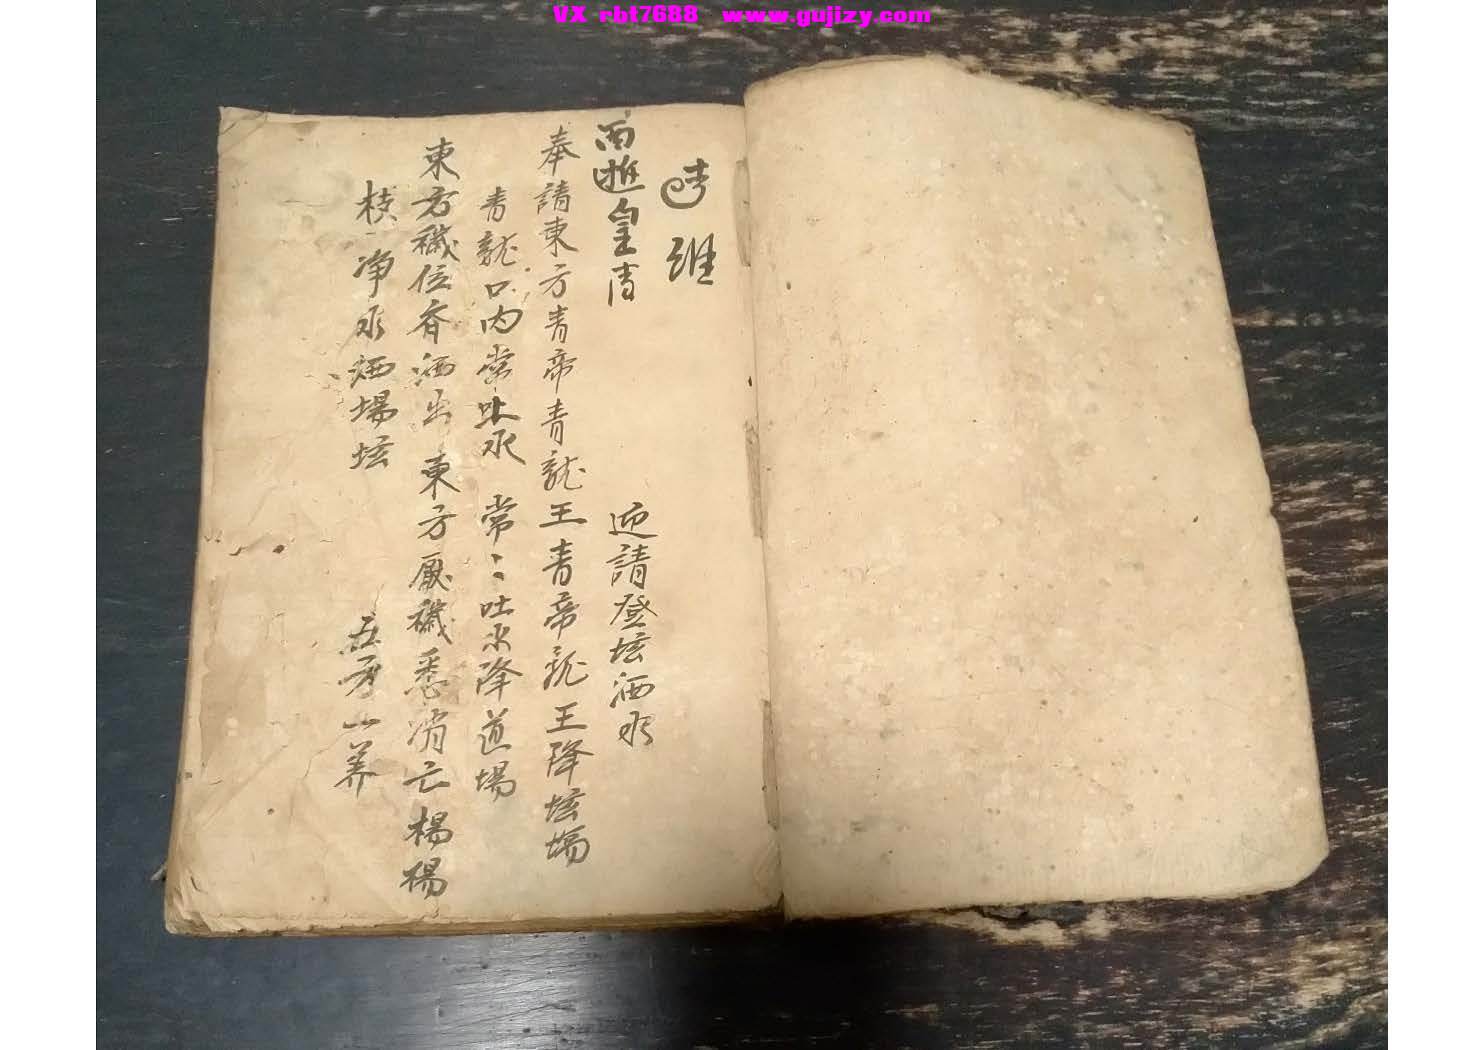 VX rbt7688 www.gujizy.com
維
皇
迎請登坛洒水
奉請東方青帝青龍王青帝龙王降坛場
青龍口內常吐水 常〻吐水降道場
東方穢位齐洒出 東方厭穢悉消亡楊楊
枝净水洒場坛
五方一养